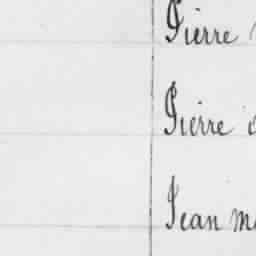 Pierre
Pierre
Jean